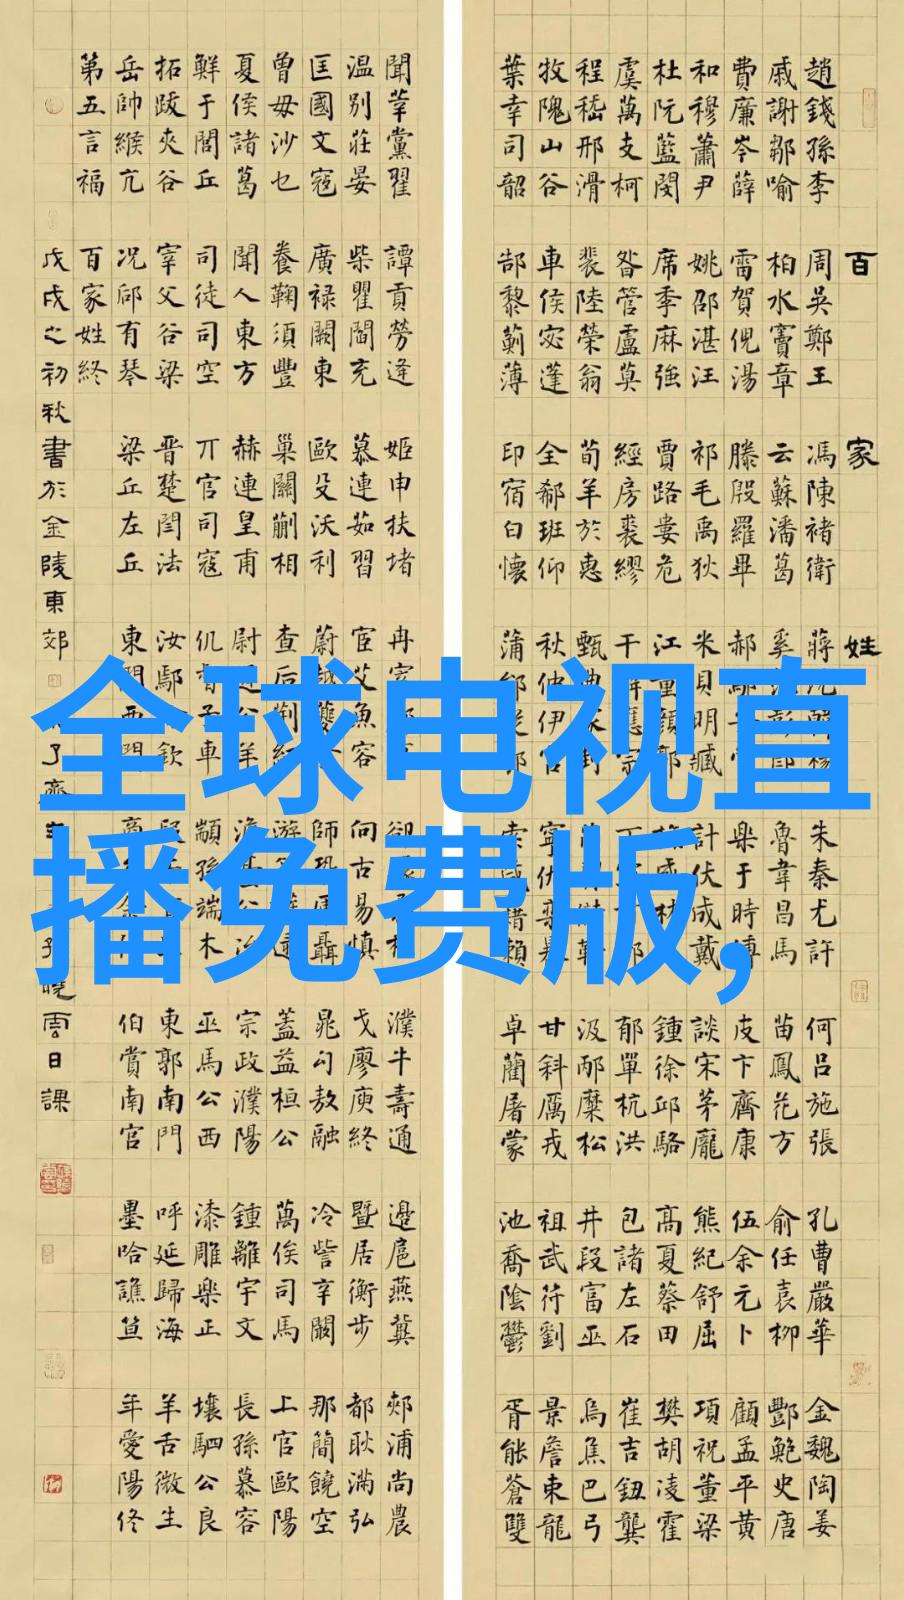 百家姓
趙錢孫李周吳鄭王馮陳褚衛蔣沈韓楊朱秦尤許何呂施張孔曹嚴華金魏陶姜
戚謝鄒喻柏水竇章云蘇潘葛奚彭郎魯韋昌馬苗鳳花方俞任袁柳酆鮑史唐
費廉岑薛雷賀倪湯滕殷羅畢郝鄔樂于時傅皮卞齊康伍余元卜顧孟平黃
和穆蕭尹姚邵湛汪祁毛禹狄米貝明臧計伏成戴談宋茅龐熊紀舒屈項祝董梁
杜阮藍閔席季麻強賈路婁危江童顏郭盛林鍾徐邱駱高夏蔡田樊胡凌霍
虞萬支柯昝管盧莫經房裘繆干解應宗丁郁單杭洪包諸左石崔吉鈕龔
程嵇邢滑裴陸榮翁荀羊於惠甄家封靳汲邴糜松井段富巫烏焦巴弓
牧隗山谷車侯宓蓬全郗班仰秋仲伊宮寧仇欒暴甘斜厲戎祖武符劉景詹束龍
葉幸司韶郜黎薊薄印宿白懷蒲邰從鄂索咸籍賴卓藺屠蒙池喬陰鬱胥能蒼雙
聞莘黨翟譚貢勞逄姬申扶堵冉宰卻桂濮牛壽通邊扈燕冀郟浦尚農
溫別莊晏柴瞿閻充慕連茹習宦艾魚容向古易慎戈廖庾終暨居衡步都耿滿弘
匡國文寇廣祿闕東歐殳沃利蔚越夔師鞏厙聶晁勾敖融冷訾辛闞那簡饒空
曾毋沙乜養鞠須豐巢關蒯相查后荊紅游逯蓋益桓公萬俟司馬上官歐陽
夏侯諸葛聞人東方赫連皇甫尉遲公羊澹臺公冶宗政濮陽鍾離宇文長孫慕容
鮮于閭丘司徒司空亓官司寇仉督子車顓孫端木巫馬公西漆雕樂正壤駟公良
拓跋夾谷宰父谷梁晉楚閆法汝鄢欽段東郭南門呼延歸海羊舌微生
岳帥緱亢況郈有琴梁丘左丘東門西門商伯賞南宮墨哈譙笪年愛陽佟
第五言福百家姓終
戊戌之初秋書於金陵東郊了齋曉雲日課
全球电视直
播免费版,